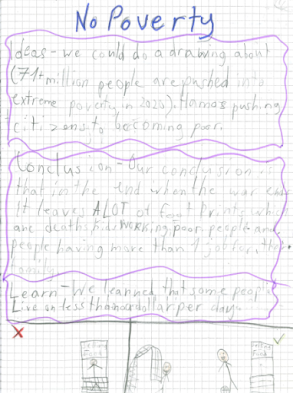 No Poverty
Ideas - we could do a drawing about
(71+ million people are pushed into
extreme poverty in 2020). Hamas pushing
citizens to becoming poor.
Conclusion - Our conclusion
that in the end when the war
It leaves ALOT of foot prints which
are deaths, kids working, poor people and
people having more than 1 job for their
family
Learn - We learned that some people
Live on less than one dollar per day.